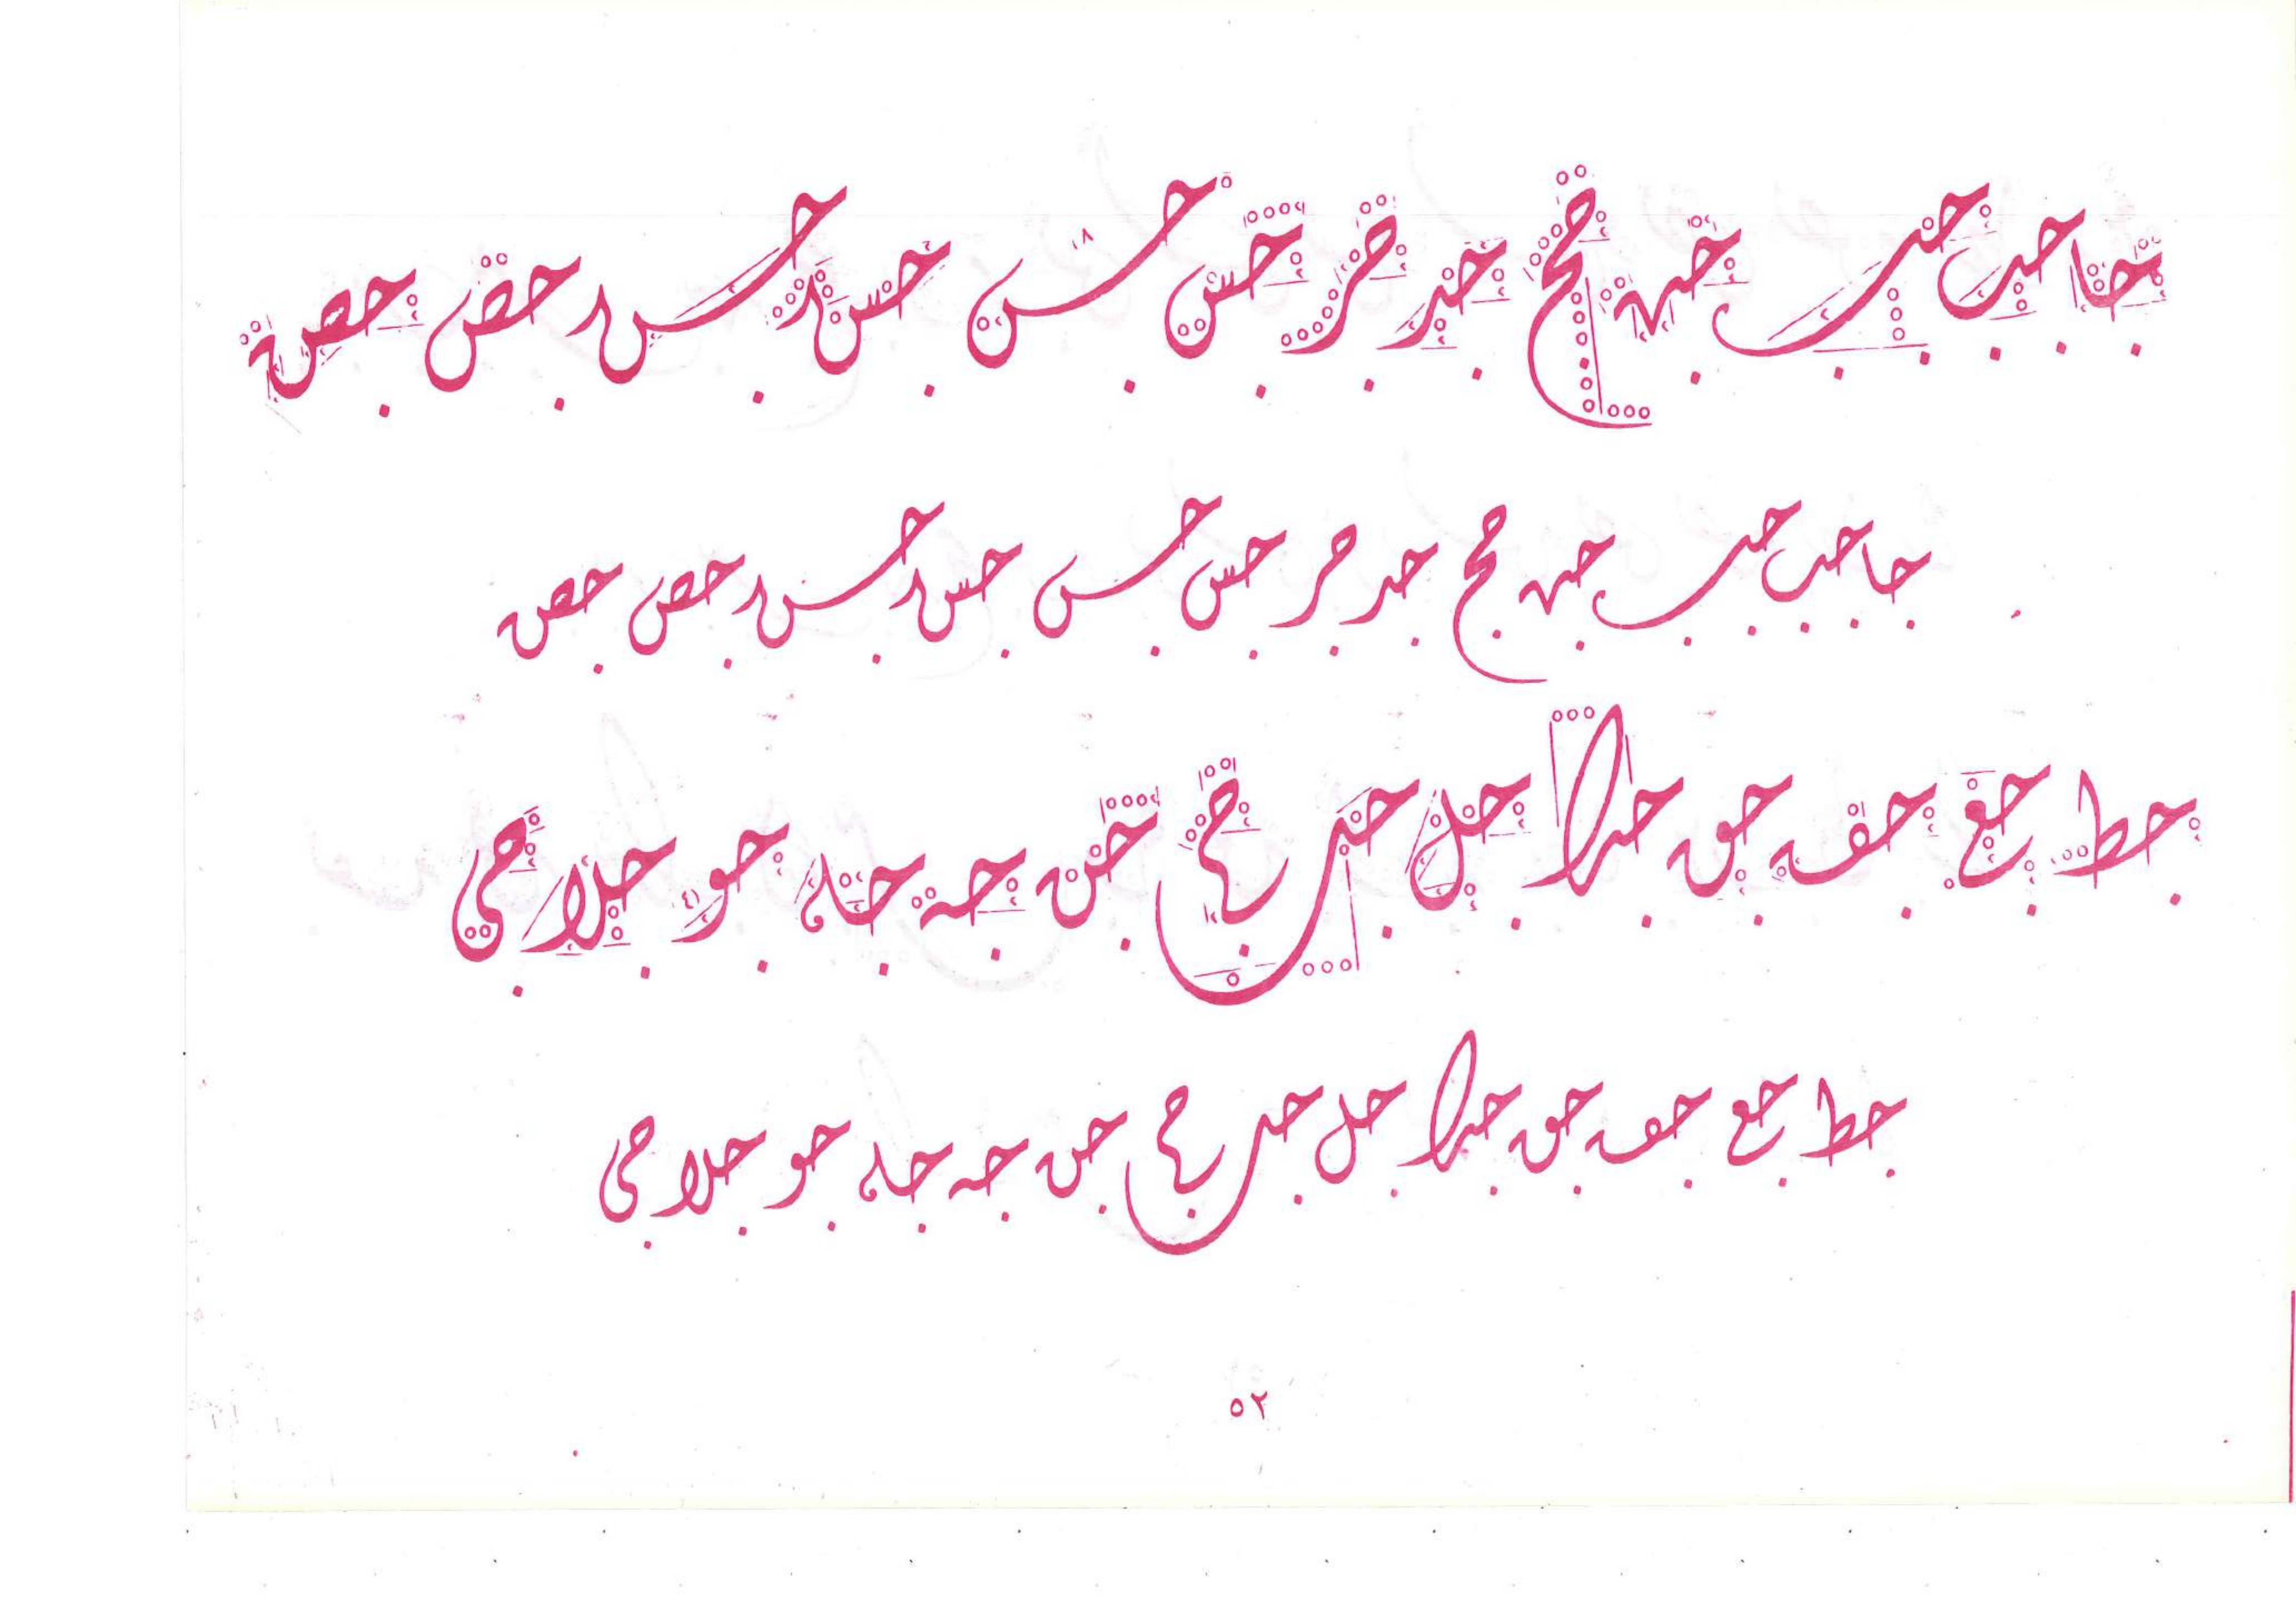 جا جب جب جج جد جر جس جس جس جس جص جص
جا جب جب جج جد جر جس جس جس جس جص جص
جط جع جف جق جك جل جم جم جن جه جه جو جلا جى
جط جع جف جق جك جل جم جم جن جه جه جو جلا جى
٥٢